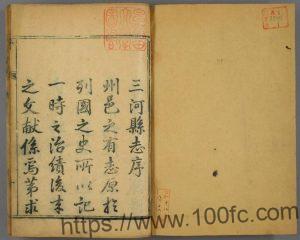 三河縣志序
州邑之有志原於
列國之史所以記
一時之治績後来
之文献係焉第求
https://www.100fc.com